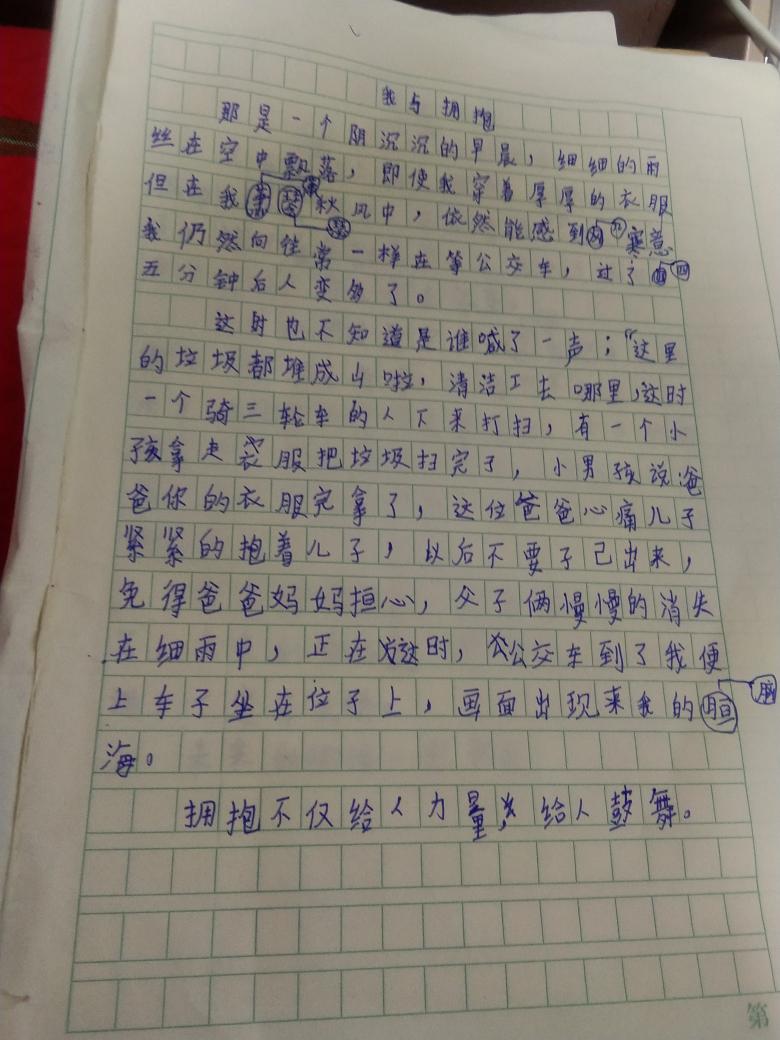 我与拥抱
那是一个阴沉沉的早晨，细细的雨
丝在空中飘落，即使我穿着厚厚的衣服
但在我萧瑟秋风中，依然能感到寒意
我仍然向往常一样在等公交车，过了四
五分钟后人变多了。
这时也不知道是谁喊了一声；“这里
的垃圾都堆成山啦，清洁工去哪里，这时
一个骑三轮车的人下来打扫，有一个小
孩拿走衣服把垃圾扫完了，小男孩说爸
爸你的衣服完拿了，这位爸爸心痛儿子
紧紧的抱着儿子，以后不要子己出来，
免得爸爸妈妈担心，父子俩慢慢的消失
在细雨中，正在这时，公交车到了我便
上车子坐在位子上，画面出现来我的脑
海。
拥抱不仅给人力量，给人鼓舞。
第